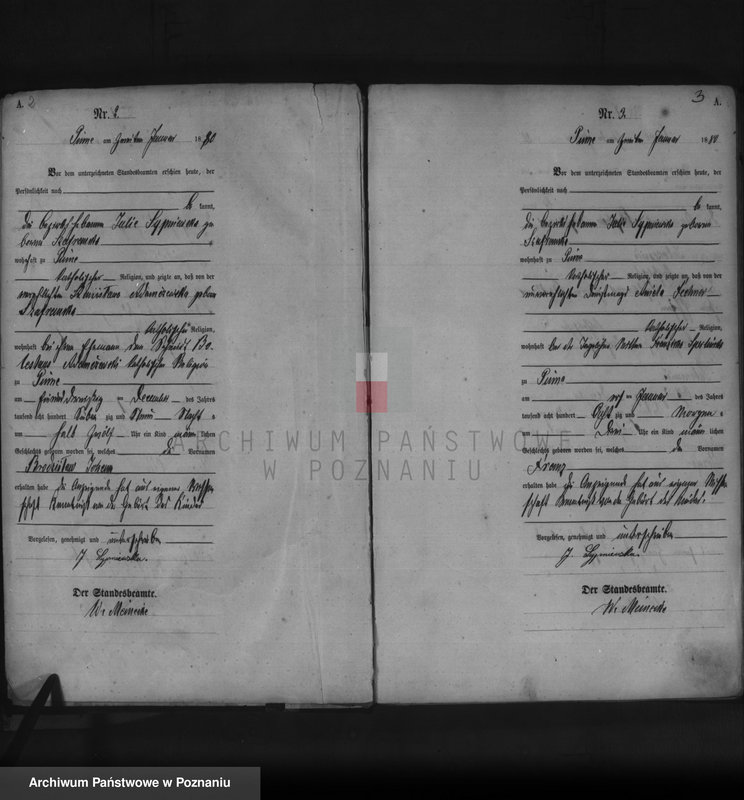 A. 2
Nr. 2.
Pinne am zweiten Januar 1880
Vor dem unterzeichneten Standesbeamten erschien heute, der
Persönlichkeit nach
be kannt,
die Bezirkshebamme Julie Sypniewska ge
borene Szafranska
wohnhaft zu Pinne
katholischer Religion, und zeigte an, daß von der
geborene
katholischer Religion,
wohnhaft bei ihrem Ehemann dem
katholischer Religion
zu Pinne
am Dezember des Jahres
tausend acht hundert sieben zig und neun Nachts
um halb zwölf Uhr ein Kind männ lichen
Geschlechts geboren worden sei, welches die Vornamen
Johann
erhalten habe die Anzeigende hat aus eigener Wissen
schaft Kenntniß von der Geburt des Kindes
Vorgelesen, genehmigt und unterschrieben
J. Sypniewska.
Der Standesbeamte.
W. Meinecke
3 A.
Nr. 3.
Pinne am zweiten Januar 1880
Vor dem unterzeichneten Standesbeamten erschien heute, der
Persönlichkeit nach
be kannt,
die Bezirkshebamme Julie Sypniewska geborene
Szafranska
wohnhaft zu Pinne
katholischer Religion, und zeigte an, daß von der
unverehelichten Dienstmagd
katholischer Religion,
wohnhaft bei
zu Pinne
am Januar des Jahres
tausend acht hundert acht zig und Morgens
um drei Uhr ein Kind männ lichen
Geschlechts geboren worden sei, welches den Vornamen
Franz
erhalten habe die Anzeigende hat aus eigener Wissen
schaft Kenntniß von der Geburt des Kindes.
Vorgelesen, genehmigt und unterschrieben
J. Sypniewska.
Der Standesbeamte.
W. Meinecke
ARCHIWUM PAŃSTWOWE
W POZNANIU
Archiwum Państwowe w Poznaniu